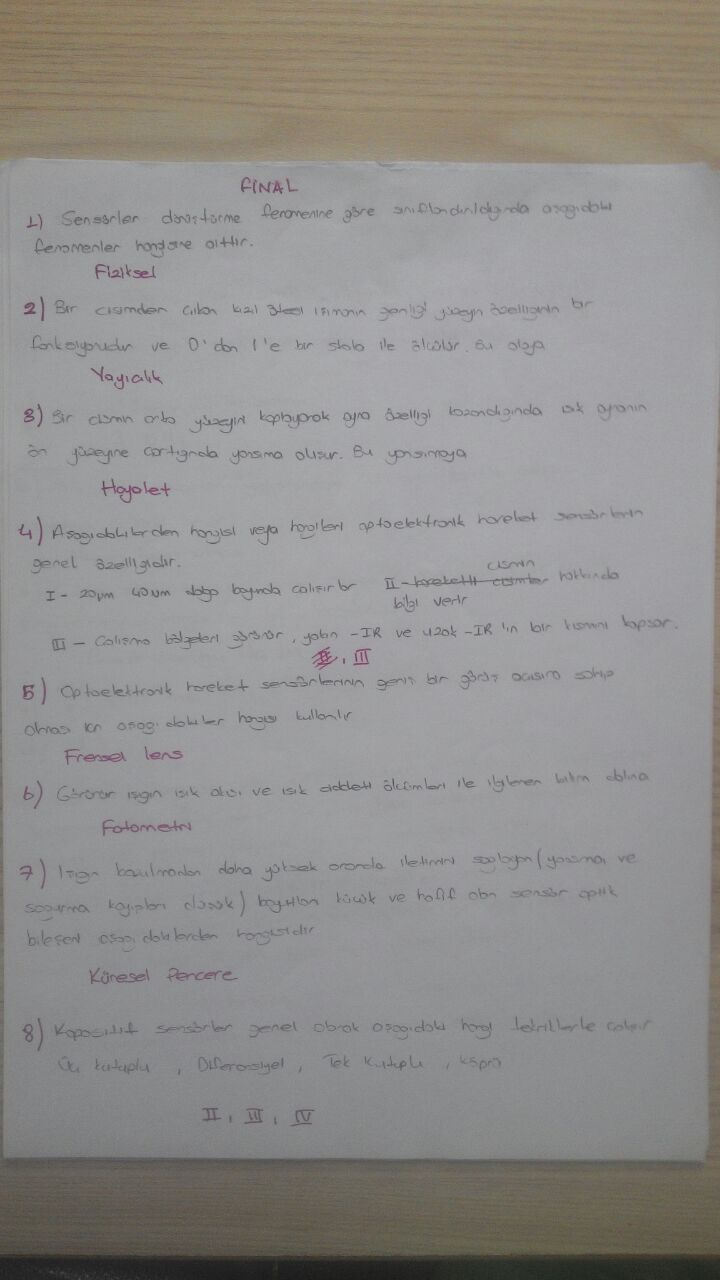 FİNAL
1) Sensörler dönüştürme fenomenine göre sınıflandırıldığında aşağıdaki
fenomenler hangisine aittir.
Fiziksel
2) Bir cisimden çıkan kızıl ötesi ışımanın genliği yüzeyin özelliğinin bir
fonksiyonudur ve 0'dan 1'e bir skala ile ölçülür. Bu olaya
Yayıcılık
3) Bir cismin arka yüzeyin kaplayarak ayna özelliği kazandığında ışık aynanın
ön yüzeyine çarptığında yansıma oluşur. Bu yansımaya
Hayalet
4) Aşağıdakilerden hangisi veya hangileri optoelektronik hareket sensörlerin
genel özelliğidir.
cismin
I - 20µm 40µm dalga boyunda çalışırlar II - hareketli cisimler hakkında
bilgi verir
III - Çalışma bölgeleri görünür, yakın -IR ve uzak -IR 'in bir kısmını kapsar.
II, III
5) Optoelektronik hareket sensörlerinin geniş bir görüş açısına sahip
olması için aşağıdakiler hangisi kullanılır
Frensel lens
6) Görünür ışığın ışık akısı ve ışık şiddeti ölçümleri ile ilgilenen bilim dalına
Fotometri
7) Işığın bozulmadan daha yüksek oranda iletimini sağlayan (yansıma ve
soğurma kayıpları düşük) boyutları küçük ve hafif olan sensör optik
bileşeni aşağıdakilerden hangisidir
Küresel Pencere
8) Kapasitif sensörler genel olarak aşağıdaki hangi tekniklerle çalışır
Üç kutuplu , Diferansiyel , Tek Kutuplu , köprü
II, III, IV